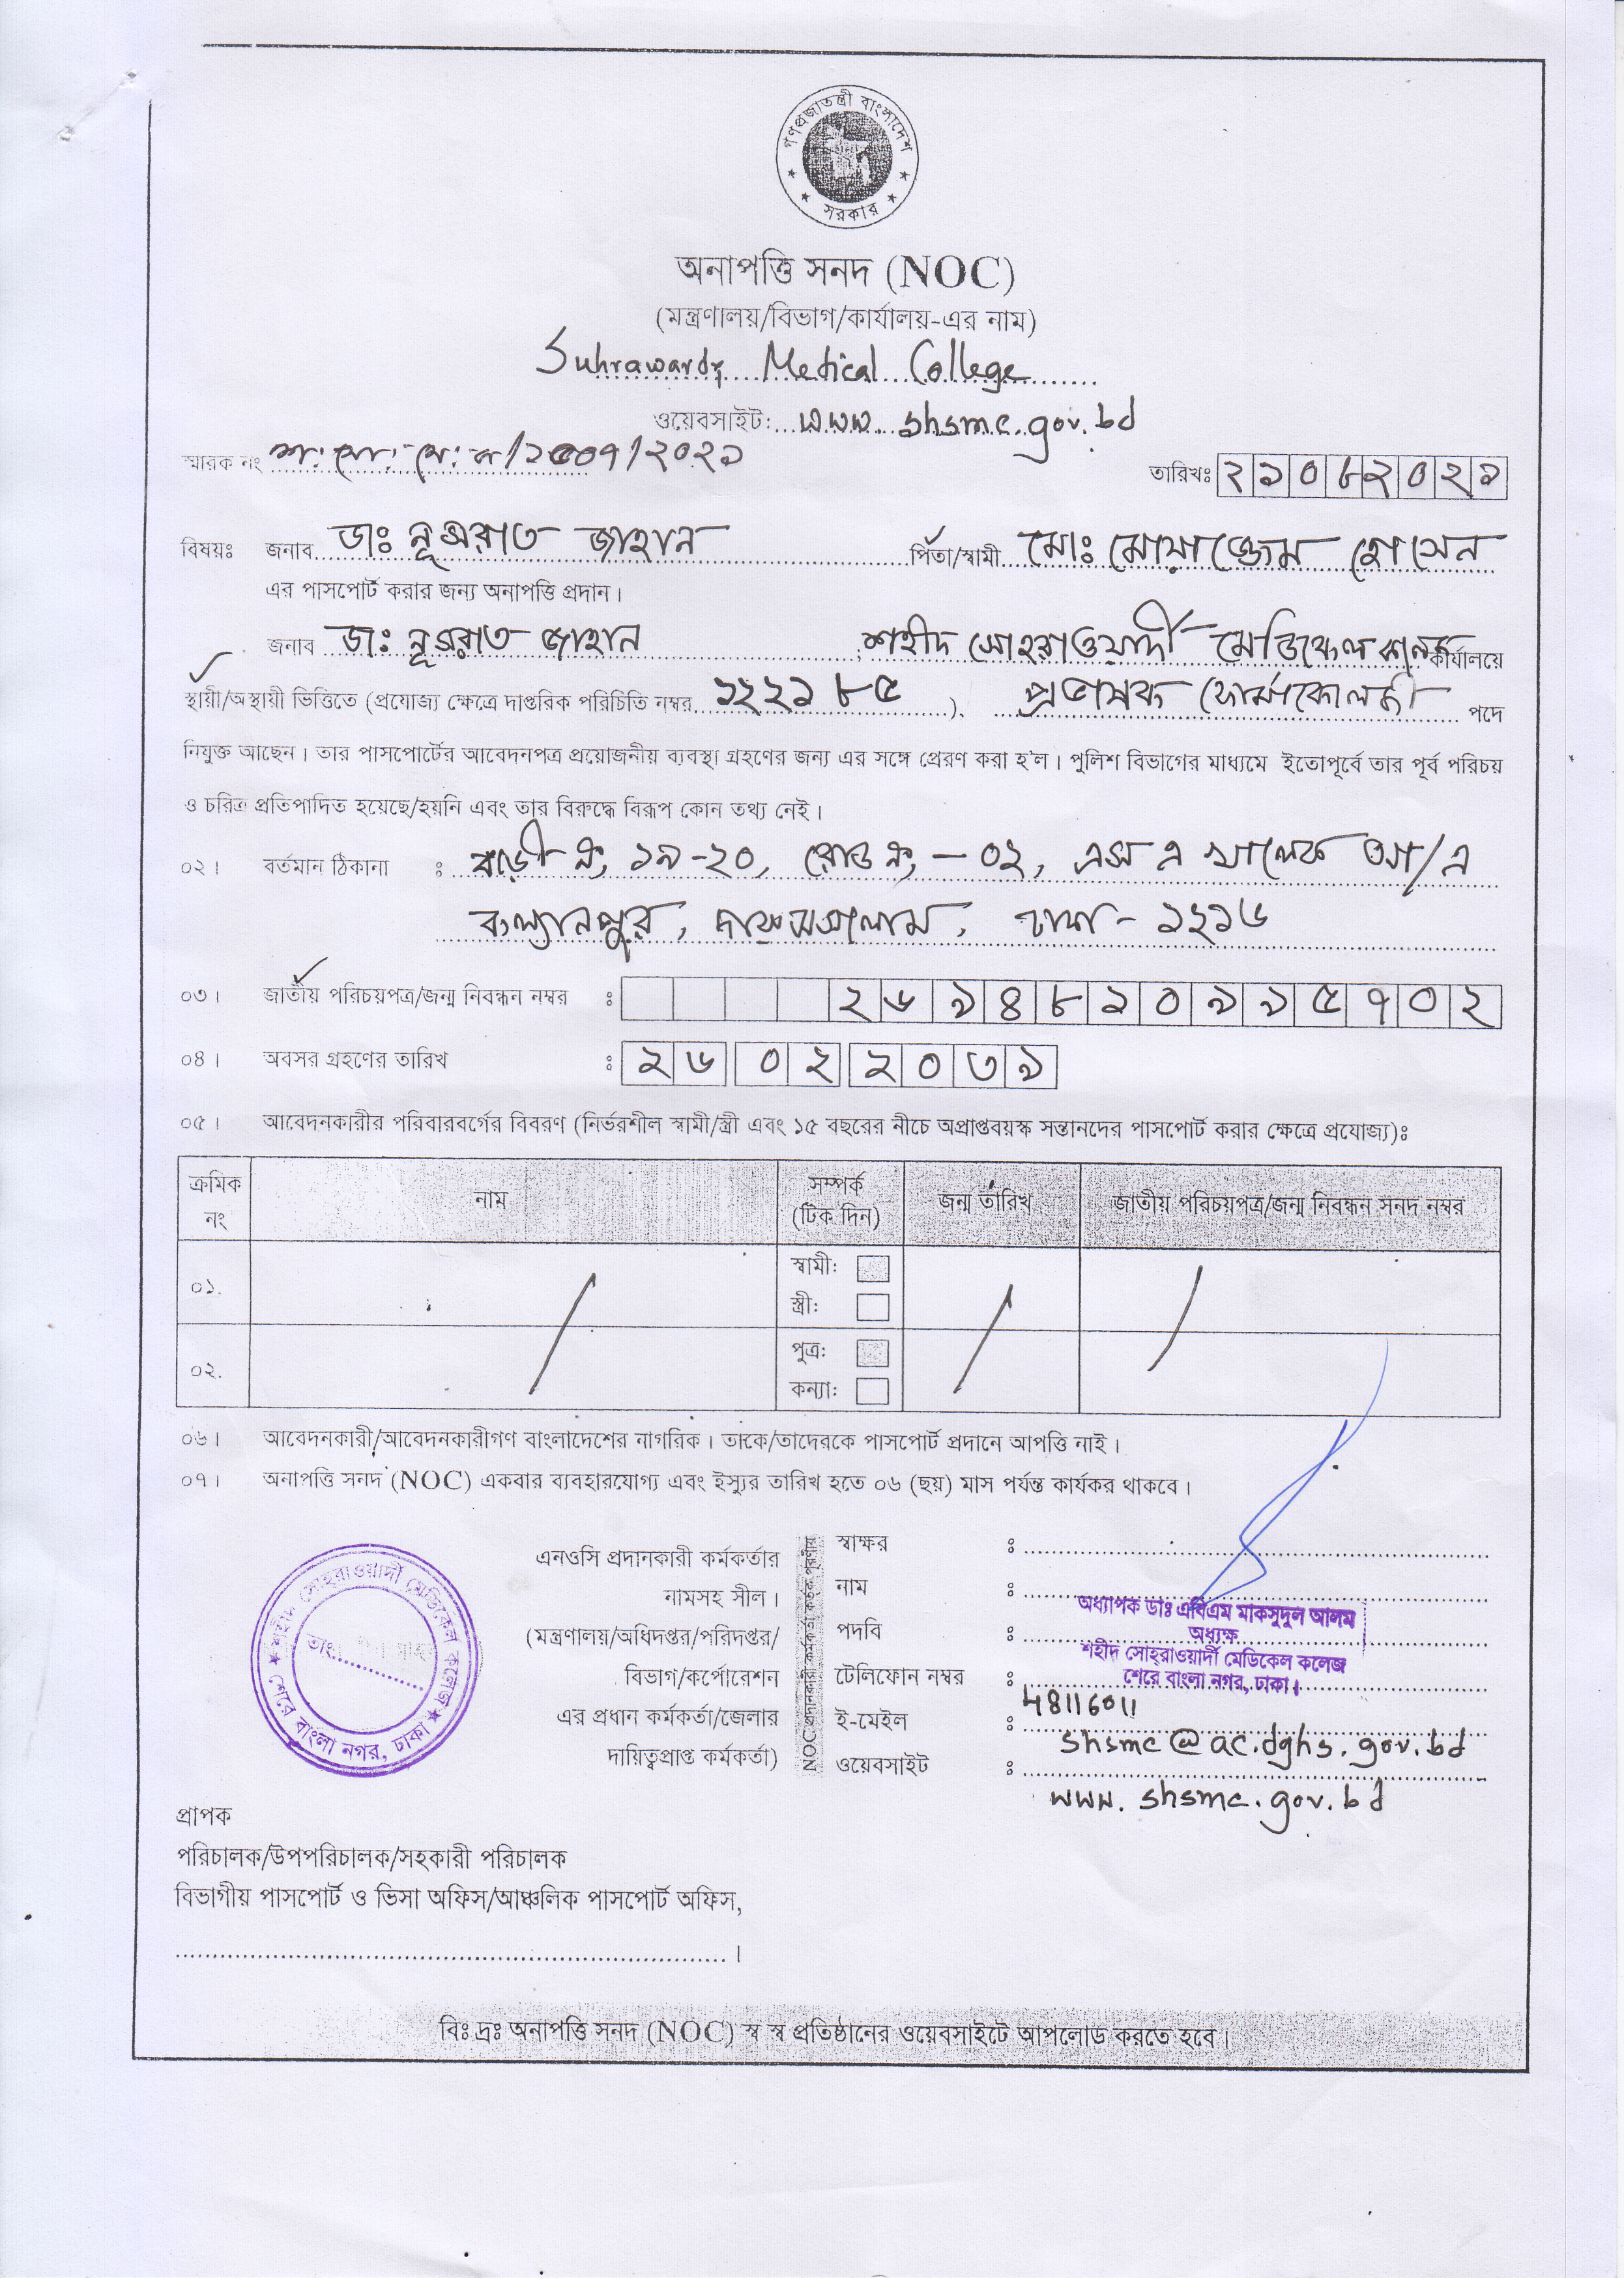 গণপ্রজাতন্ত্রী বাংলাদেশ
সরকার
অনাপত্তি সনদ (NOC)
(মন্ত্রণালয়/বিভাগ/কার্যালয়-এর নাম)
Suhrawardy Medical College
ওয়েবসাইট: www.shsmc.gov.bd
স্মারক নং /২০২১
তারিখঃ ২১০৮২০২১
বিষয়ঃ জনাব ডাঃ নূসরাত জাহান পিতা/স্বামী মোঃ মোয়াজ্জেম হোসেন
এর পাসপোর্ট করার জন্য অনাপত্তি প্রদান।
জনাব ডাঃ নূসরাত জাহান , শহীদ সোহরাওয়ার্দী মেডিকেল কলেজ কার্যালয়ে
স্থায়ী/অস্থায়ী ভিত্তিতে (প্রযোজ্য ক্ষেত্রে দাপ্তরিক পরিচিতি নম্বর ১২২১৮৫ ), প্রভাষক ফার্মাকোলজী পদে
নিযুক্ত আছেন। তার পাসপোর্টের আবেদনপত্র প্রয়োজনীয় ব্যবস্থা গ্রহণের জন্য এর সঙ্গে প্রেরণ করা হ'ল। পুলিশ বিভাগের মাধ্যমে ইতোপূর্বে তার পূর্ব পরিচয়
ও চরিত্র প্রতিপাদিত হয়েছে/হয়নি এবং তার বিরুদ্ধে বিরূপ কোন তথ্য নেই।
০২। বর্তমান ঠিকানা : বাড়ী নং ১৯-২০, রোড নং - ০২, এস এ খালেক আ/এ
কল্যানপুর, দারুসসালাম, ঢাকা - ১২১৬
০৩। জাতীয় পরিচয়পত্র/জন্ম নিবন্ধন নম্বর : ২৬৯৪৮১০৯৯৫৭০২
০৪। অবসর গ্রহণের তারিখ : ২৬০২২০৩৯
০৫। আবেদনকারীর পরিবারবর্গের বিবরণ (নির্ভরশীল স্বামী/স্ত্রী এবং ১৫ বছরের নীচে অপ্রাপ্তবয়স্ক সন্তানদের পাসপোর্ট করার ক্ষেত্রে প্রযোজ্য)ঃ
ক্রমিক নং নাম সম্পর্ক (টিক দিন) জন্ম তারিখ জাতীয় পরিচয়পত্র/জন্ম নিবন্ধন সনদ নম্বর
০১. স্বামী:
স্ত্রী:
০২. পুত্র:
কন্যা:
০৬। আবেদনকারী/আবেদনকারীগণ বাংলাদেশের নাগরিক। তাকে/তাদেরকে পাসপোর্ট প্রদানে আপত্তি নাই।
০৭। অনাপত্তি সনদ (NOC) একবার ব্যবহারযোগ্য এবং ইস্যুর তারিখ হতে ০৬ (ছয়) মাস পর্যন্ত কার্যকর থাকবে।
শহীদ সোহরাওয়ার্দী মেডিকেল কলেজ
তাং
শেরে বাংলা নগর, ঢাকা
এনওসি প্রদানকারী কর্মকর্তার
নামসহ সীল।
(মন্ত্রণালয়/অধিদপ্তর/পরিদপ্তর/
বিভাগ/কর্পোরেশন
এর প্রধান কর্মকর্তা/জেলার
দায়িত্বপ্রাপ্ত কর্মকর্তা)
NOC প্রদানকারী কর্মকর্তা কর্তৃক পূরণীয়
স্বাক্ষর :
নাম :
পদবি :
টেলিফোন নম্বর :
ই-মেইল :
ওয়েবসাইট :
অধ্যাপক ডাঃ এবিএম মাকসুদুল আলম
অধ্যক্ষ
শহীদ সোহরাওয়ার্দী মেডিকেল কলেজ
শেরে বাংলা নগর, ঢাকা।
48116011
shsmc@ac.dghs.gov.bd
www.shsmc.gov.bd
প্রাপক
পরিচালক/উপপরিচালক/সহকারী পরিচালক
বিভাগীয় পাসপোর্ট ও ভিসা অফিস/আঞ্চলিক পাসপোর্ট অফিস,
বিঃ দ্রঃ অনাপত্তি সনদ (NOC) স্ব স্ব প্রতিষ্ঠানের ওয়েবসাইটে আপলোড করতে হবে।